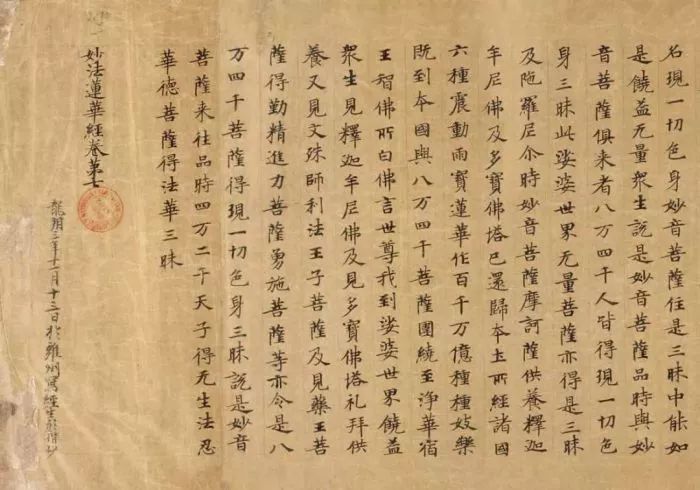 名現一切色身妙音菩薩住是三昧中能如
是饒益无量衆生說是妙音菩薩品時與妙
音菩薩俱来者八万四千人皆得現一切色
身三昧此娑婆世界无量菩薩亦得是三昧
及陁羅尼尒時妙音菩薩摩訶薩供養釋迦
牟尼佛及多寶佛塔已還歸本土所經諸國
六種震動雨寶蓮華作百千万億種種妓樂
既到本國與八万四千菩薩圍繞至淨華宿
王智佛所白佛言世尊我到娑婆世界饒益
衆生見釋迦牟尼佛及見多寶佛塔礼拜供
養又見文殊師利法王子菩薩及見藥王菩
薩得勤精進力菩薩勇施菩薩等亦令是八
万四千菩薩得現一切色身三昧說是妙音
菩薩来往品時四万二千天子得无生法忍
華德菩薩得法華三昧
妙法蓮華經卷第七
龍朔三年十月十三日於雍州寫經生彭楷抄